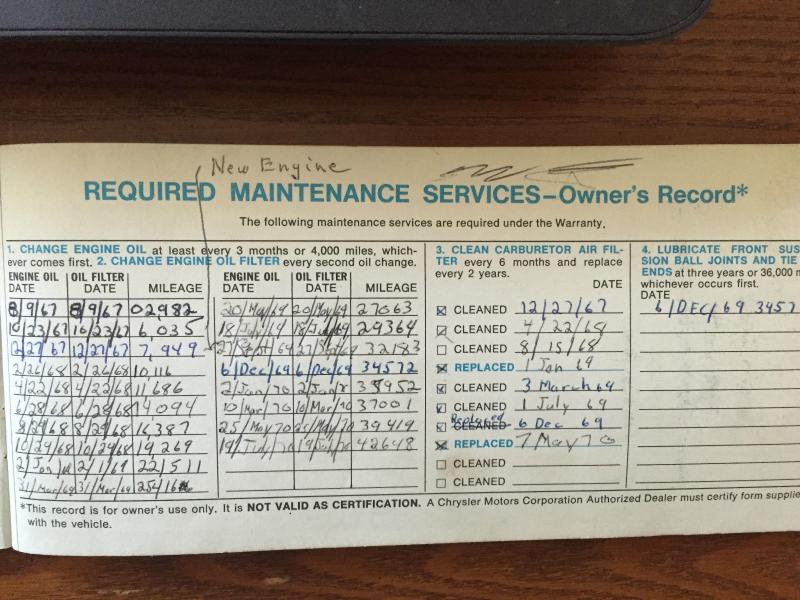 New Engine
REQUIRED MAINTENANCE SERVICES–Owner's Record*
The following maintenance services are required under the Warranty.
1. CHANGE ENGINE OIL at least every 3 months or 4,000 miles, which-
ever comes first. 2. CHANGE ENGINE OIL FILTER every second oil change.
ENGINE OIL DATE OIL FILTER DATE MILEAGE
8/9/67 8/9/67 02982
10/23/67 10/23/67 6,035
12/27/67 12/27/67 7,949
2/26/68 2/26/68 10,116
4/22/68 4/22/68 11686
6/28/68 6/28/68 14094
8/29/68 8/29/68 16387
10/29/68 10/29/68 19269
2/Jan/ 2/1/69 22511
31/Mar/69 31/Mar/69 25416
ENGINE OIL DATE OIL FILTER DATE MILEAGE
20/May/69 20/May/69 27063
18/July/69 18/July/69 29364
27/Sept/69 27/Sept/69 32183
6/Dec/69 6/Dec/69 34572
2/Jan/70 2/Jan/
10/Mar/70 10/Mar/70 37001
25/May/70 25/May/70 39419
19/July/70 19/July/70 42648
3. CLEAN CARBURETOR AIR FIL-
TER every 6 months and replace
every 2 years.
DATE
CLEANED 12/27/67
CLEANED 4/22/68
CLEANED 8/15/68
REPLACED 1 Jan 69
CLEANED 3 March 69
CLEANED 1 July 69
Replaced CLEANED 6 Dec 69
REPLACED 7 May 70
CLEANED
CLEANED
4. LUBRICATE FRONT SUS
SION BALL JOINTS AND TIE
ENDS at three years or 36,000 m
whichever occurs first.
DATE
6/DEC/69 3457
*This record is for owner's use only. It is NOT VALID AS CERTIFICATION. A Chrysler Motors Corporation Authorized Dealer must certify form supplie
with the vehicle.